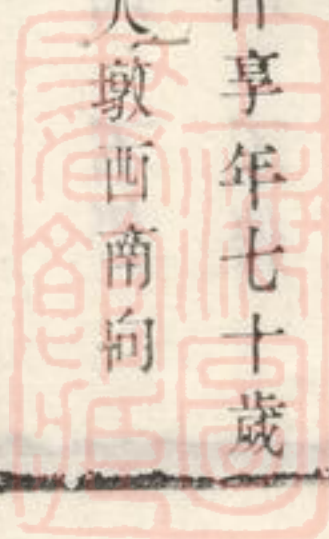 享年七十歲
墩西南向